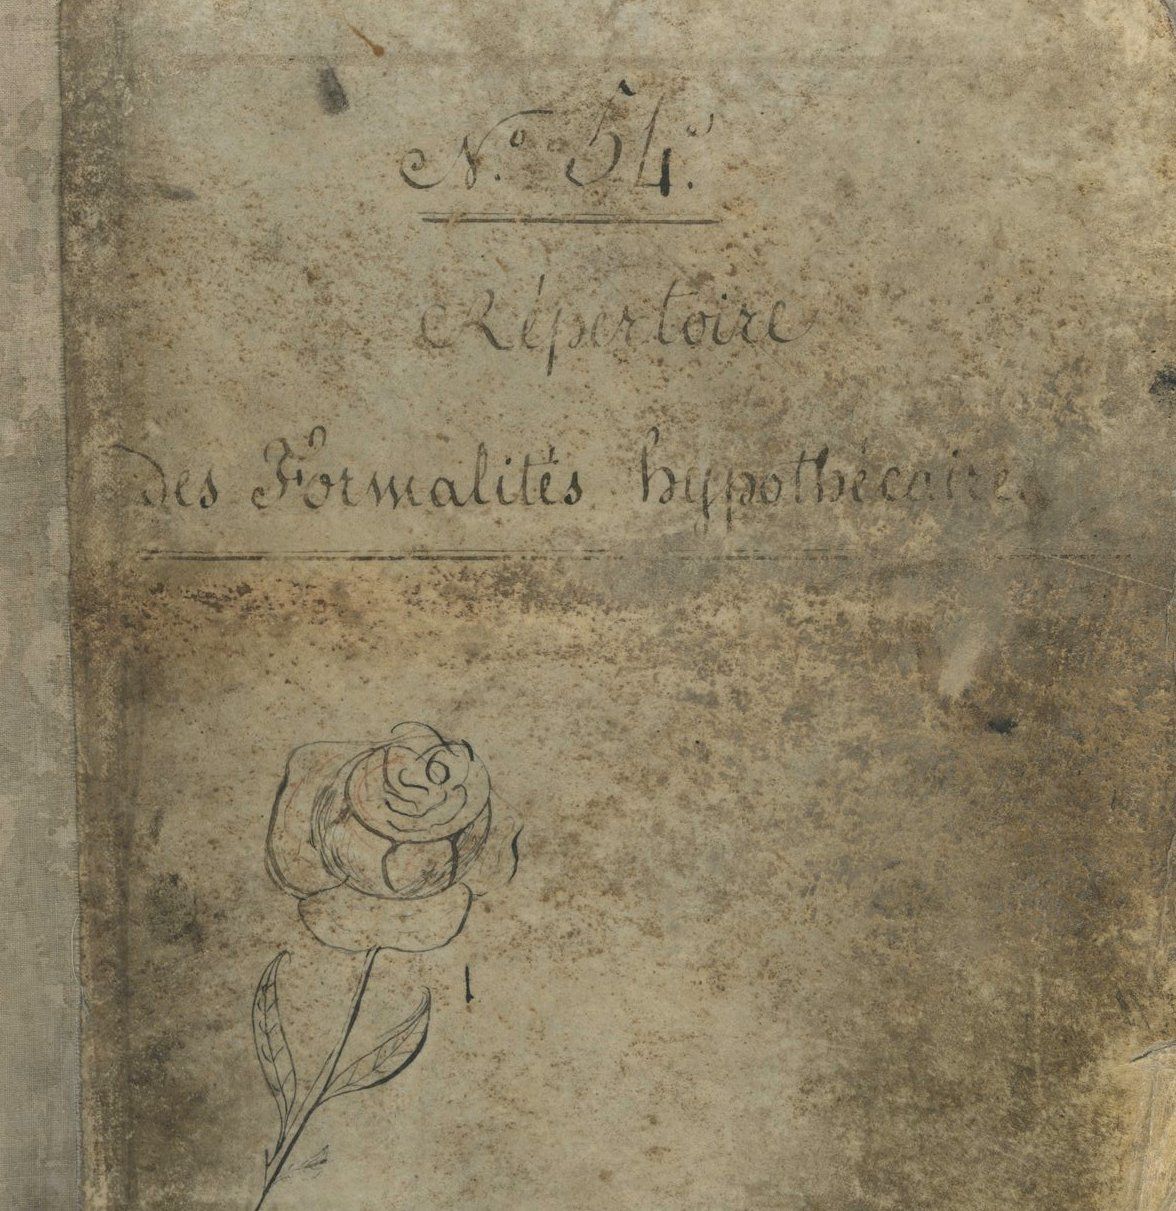 N.º 54.
Répertoire
des Formalités hypothécaires